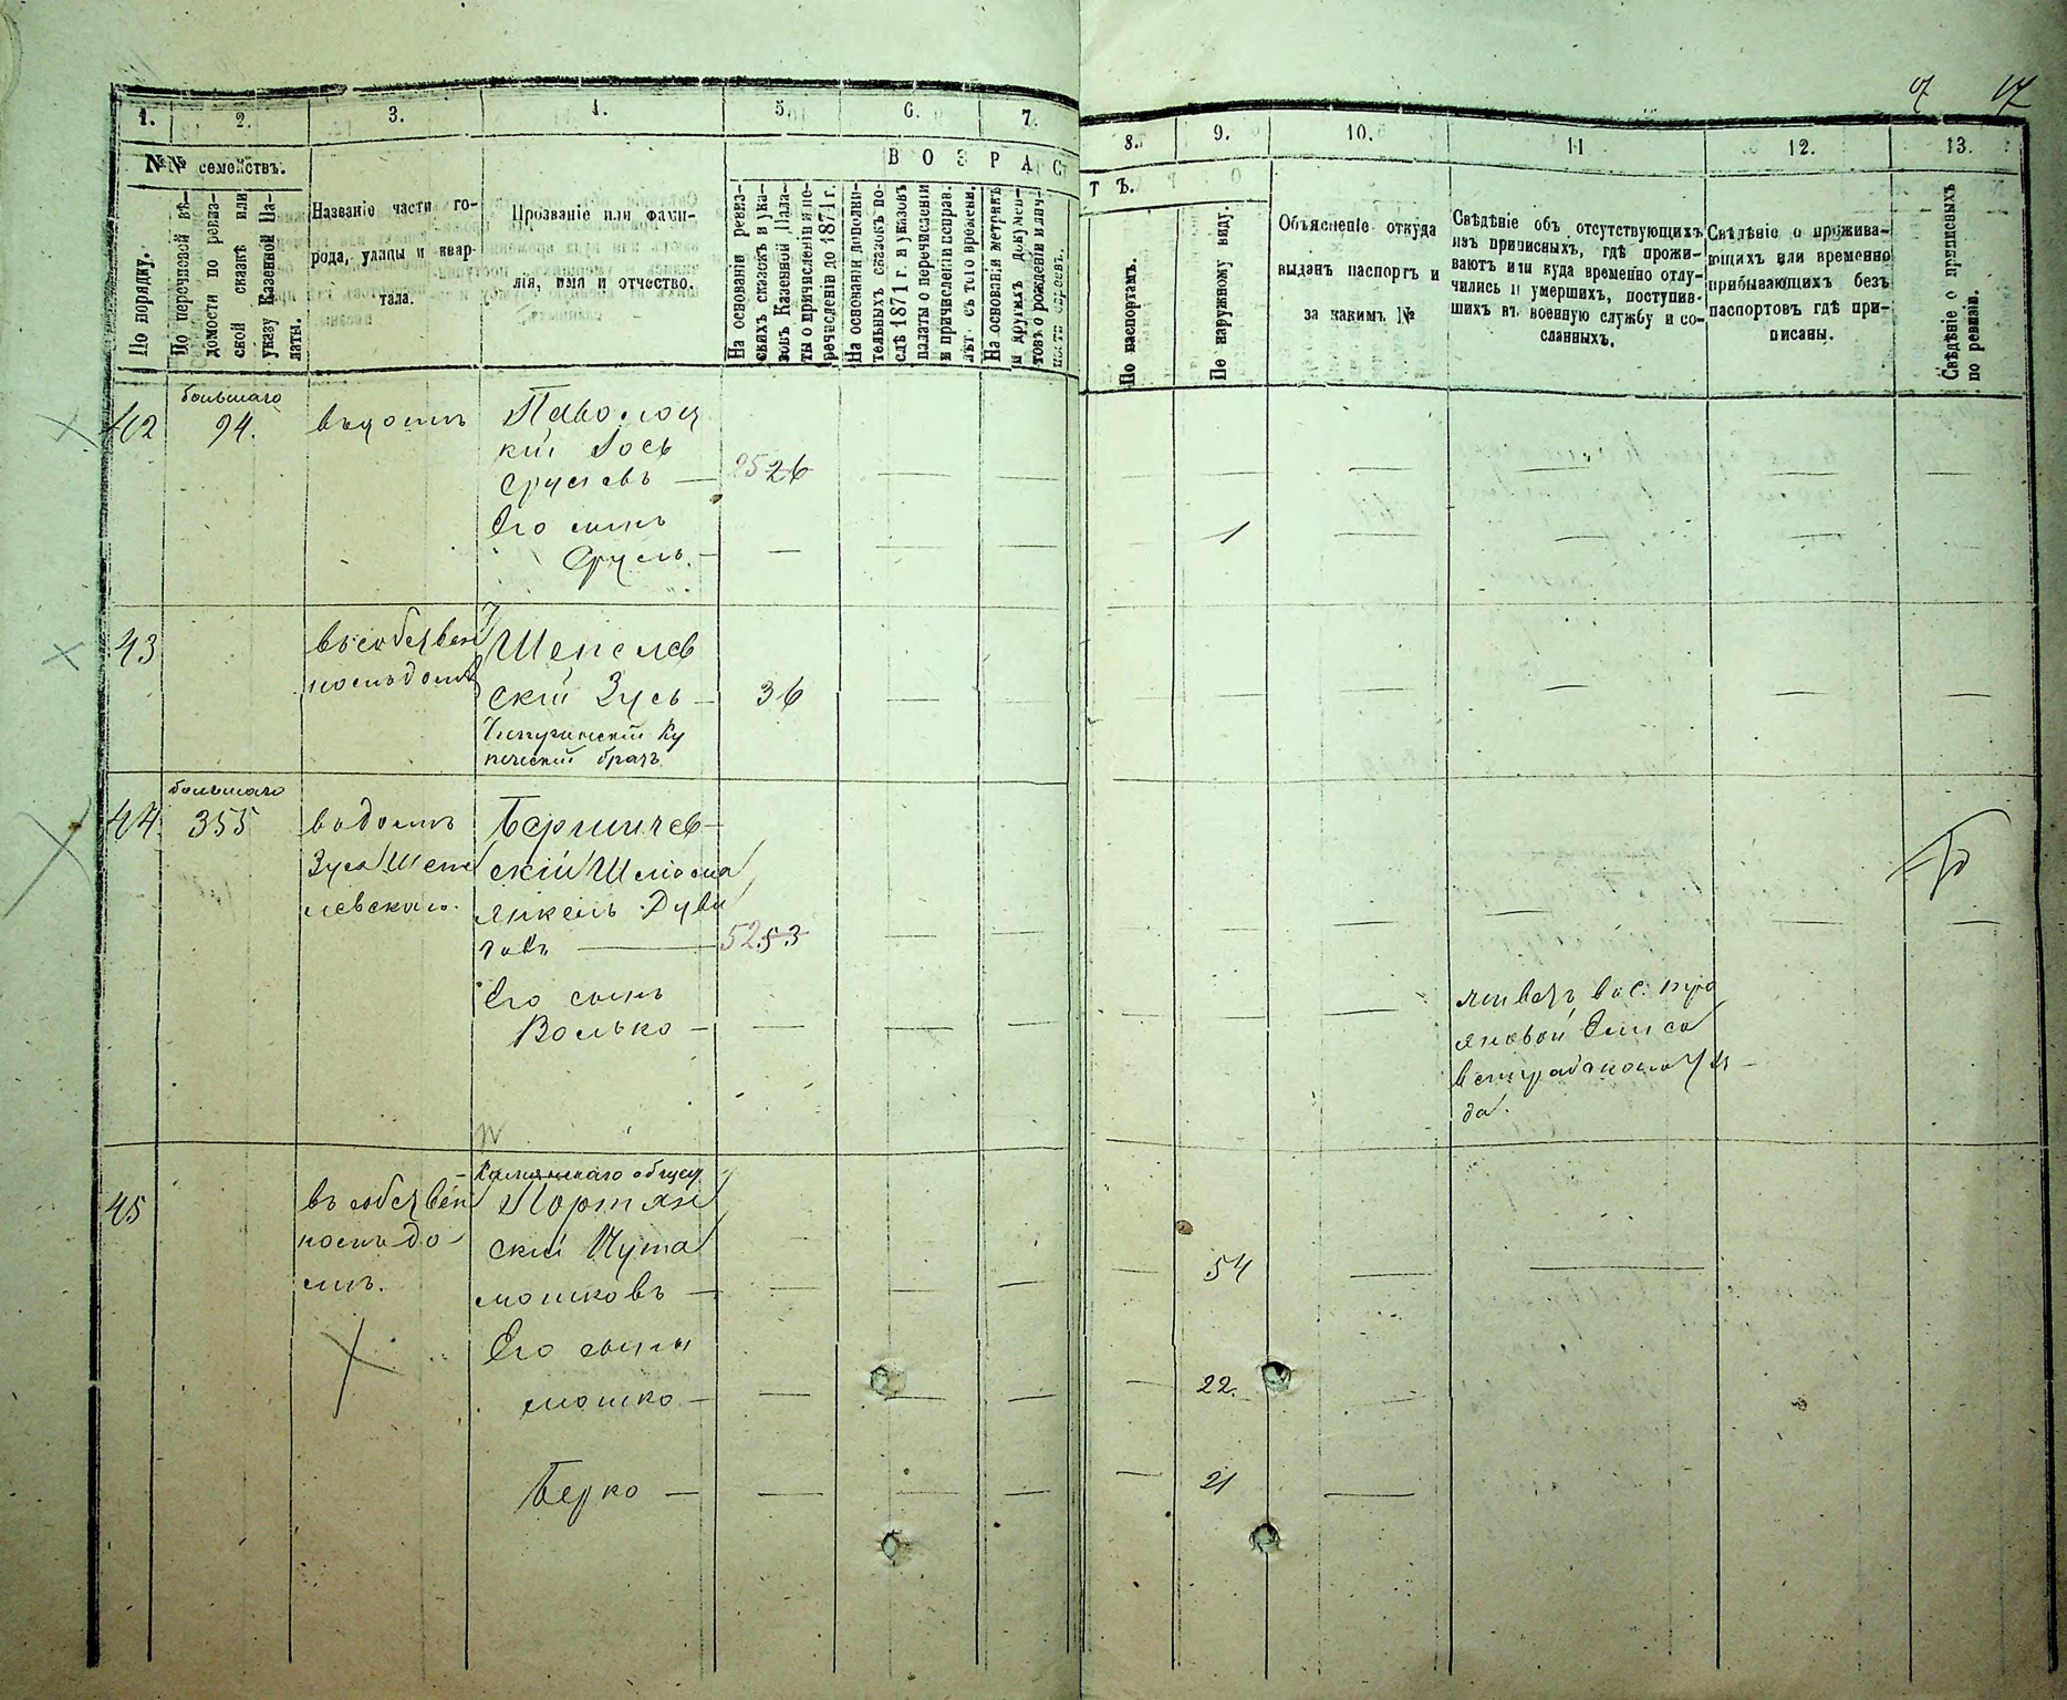 1.
2.
3.
4.
5.
6.
7.
8.
9.
10.
11
12.
13.
№№ семействъ.
По порядку.
По перечневой вѣ-
домости по ревиз-
ской сказкѣ или
указу Казенной Па-
латы.
Названіе части го-
рода, улицы и квар-
тала.
Прозваніе или фами-
лія, имя и отчество.
ВОЗРАС
ТЪ.
На основаніи ревиз-
скихъ сказокъ и ука-
зовъ Казенной Пала-
ты о причисленіи и пе-
речисленіи до 1871 г.
На основаніи дополни-
тельныхъ сказокъ по-
слѣ 1871 г. и указовъ
палаты о перечисленіи
и причисленіи исправ.
лѣт. съ того времени.
На основаніи метрикъ
и другихъ докумен-
товъ о рожденіи
По паспортамъ.
По наружному виду.
Объясненіе откуда
выданъ паспортъ и
за какимъ №
Свѣдѣніе объ отсутствующихъ
изъ приписныхъ, гдѣ прожи-
ваютъ или куда временно отлу-
чились и умершихъ, поступив-
шихъ въ военную службу и со-
сланныхъ.
Свѣдѣніе о прожива-
ющихъ или временно
прибывающихъ безъ
паспортовъ гдѣ при-
писаны.
Свѣдѣніе о приписныхъ
по ревизіи.
42
большаго
94.
Паволоц
кій Іось
Срулевъ — 25 26
Его сынъ
Сруль. — 1
43
въ собствен
номъ домѣ
Шепелев
скій Зусь — 36
купеческій братъ
44.
большаго
355
в домѣ
Зуся Шепе
левскаго.
Бердичев-
скій Шлiома
Янкель Дуви
довъ — 52 53
Его сынъ
Волько —
живетъ в с.
Елиса
ветградскаго уѣз-
да.
45
въ собствен
номъ до
мѣ.
общес
Портян
скій Нута
Мошковъ — 54
Его сыны
Мошко — 22.
Берко — 21